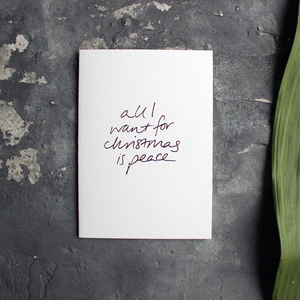 all I
want for
christmas
is peace